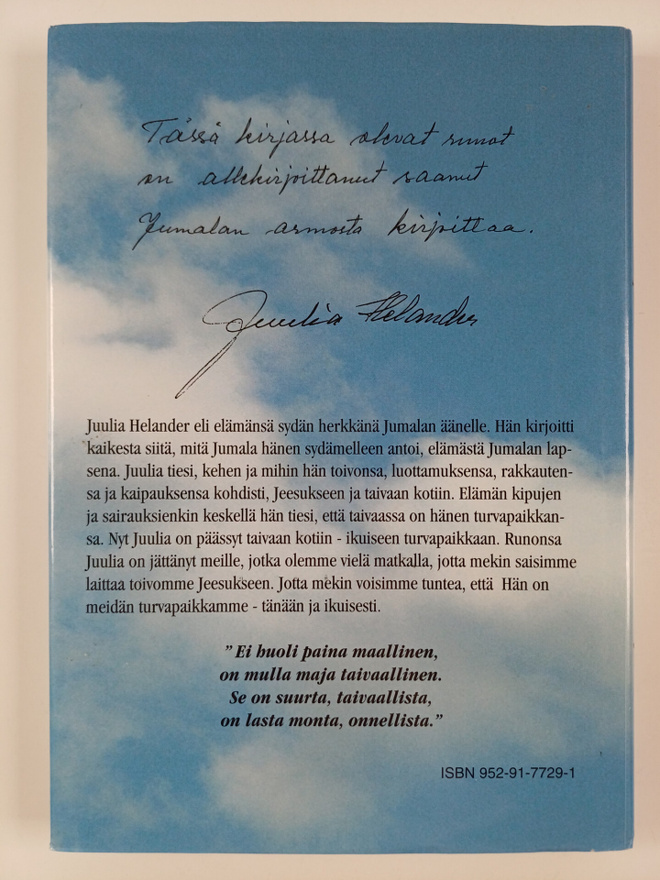 Tässä kirjassa olevat runot
on allekirjoittanut saanut
Jumalan armosta kirjoittaa.
Juulia Helander
Juulia Helander eli elämänsä sydän herkkänä Jumalan äänelle. Hän kirjoitti
kaikesta siitä, mitä Jumala hänen sydämelleen antoi, elämästä Jumalan lap-
sena. Juulia tiesi, kehen ja mihin hän toivonsa, luottamuksensa, rakkauten-
sa ja kaipauksensa kohdisti, Jeesukseen ja taivaan kotiin. Elämän kipujen
ja sairauksienkin keskellä hän tiesi, että taivaassa on hänen turvapaikkan-
sa. Nyt Juulia on päässyt taivaan kotiin - ikuiseen turvapaikkaan. Runonsa
Juulia on jättänyt meille, jotka olemme vielä matkalla, jotta mekin saisimme
laittaa toivomme Jeesukseen. Jotta mekin voisimme tuntea, että Hän on
meidän turvapaikkamme - tänään ja ikuisesti.
”Ei huoli paina maallinen,
on mulla maja taivaallinen.
Se on suurta, taivaallista,
on lasta monta, onnellista.”
ISBN 952-91-7729-1